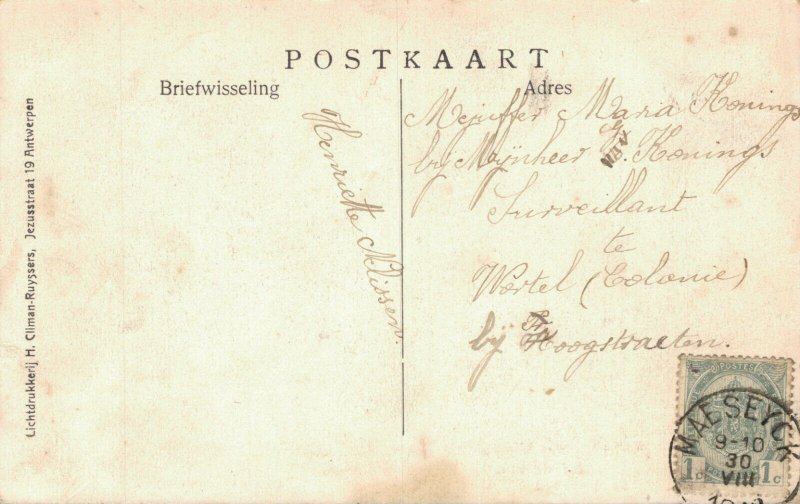 POSTKAART
Briefwisseling
Adres
Lichtdrukkerij H. Climan-Ruyssers, Jezusstraat 19 Antwerpen
Henriette Nelissen.
Mejuffer Maria Konings
bij Mijnheer Konings
Surveillant
te
Wortel (Colonie)
bij Hoogstraeten.
POSTES
1c 1c
MAESEYCK
9-10
30
VIII